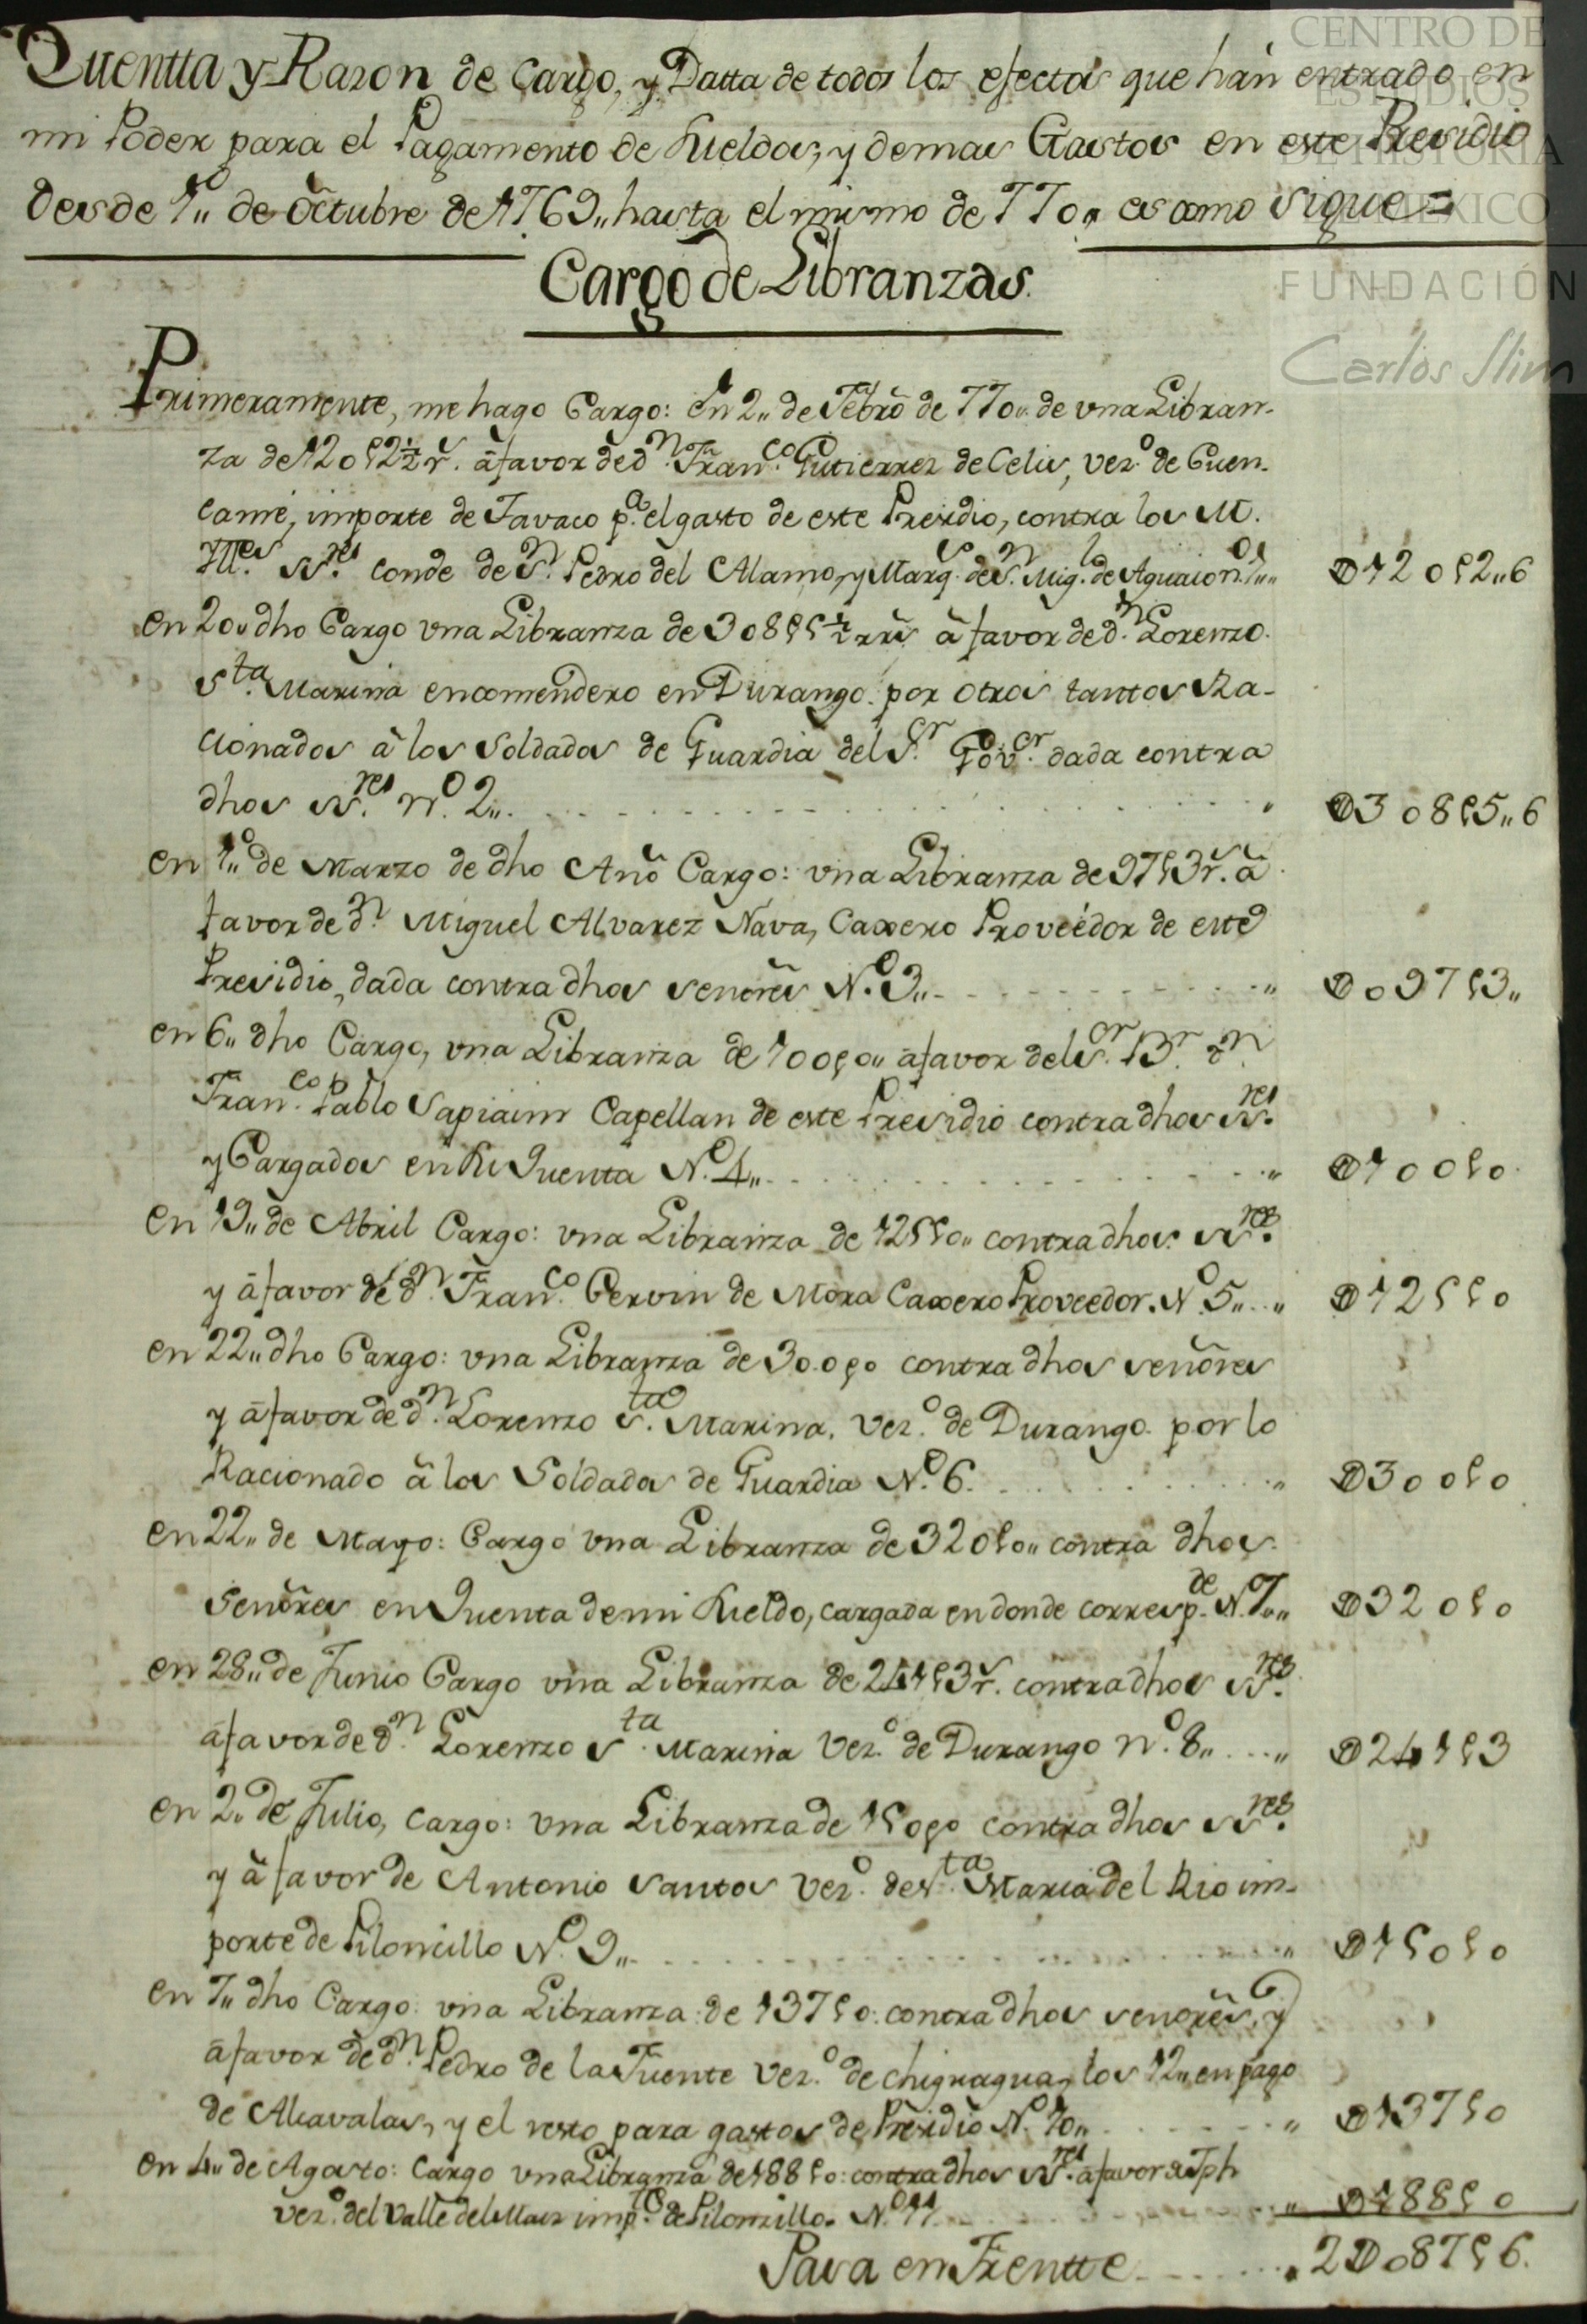 CENTRO DE
ESTUDIOS
DE HISTORIA
DE MEXICO
FUNDACIÓN
Carlos Slim
Quentta y Razon de Cargo, y Datta de todos los efectos que hán entrado en
mi Poder para el Pagamento de Sueldos, y demas Gastos en este Presidio
desde 1.º de Octubre de 1769,, hasta el mismo de 770,, es como sigue=
Cargo de Libranzas.
Primeramente, me hago Cargo: en 2,, de Febrõ de 770,, de vna Libran-
za de 120$2½ r.s â favor de d.n Fran.co Gutierrez de Celis, vez.º de Cuen-
camé, importe de Tavaco p.a el gasto de este Presidio, contra los M.
Ill.es SS.res Conde de S.n Pedro del Alamo, y Marq.s de S.n Mig.l de Aguaio n.º 1,,
D120$2,,6
en 20,, dho Cargo vna Libranza de 308$5½ rr.s â favor de d.n Lorenzo
S.ta Marina encomendero en Durango por otros tantos Ra-
cionados â los Soldados de Guardia del S.r Gov.or dada contra
dhos SS.res N.º 2,,
D308$5,,6
en 1.º de Marzo de dho Año Cargo: vna Libranza de 97$3 r.s â
favor de d.n Miguel Alvarez Nava, Caxero Proveedor de este
Presidio, dada contra dhos señores N.º 3,,
D097$3,,
en 6,, dho Cargo, vna Libranza de 100$0,, â favor del S.or B.r d.n
Fran.co Pablo Sapiaim Capellan de este Presidio contra dhos SS.res
y Cargados en su Quenta N.º 4,,
D100$0
en 19,, de Abril Cargo: vna Libranza de 125$0,, contra dhos SS.res
y â favor de d.n Fran.co Cervin de Mora Caxero Proveedor. N.º 5,,
D125$0
en 22,, dho Cargo: vna Libranza de 300$0 contra dhos señores
y â favor de d.n Lorenzo S.ta Marina, vez.º de Durango por lo
Racionado â los Soldados de Guardia N.º 6.
D300$0
en 22,, de Mayo: Cargo vna Libranza de 320$0,, contra dhos
Señores en Quenta de mi Sueldo, cargada en donde corresp.de N.º 7,,
D320$0
en 28,, de Junio Cargo vna Libranza de 241$3 r.s contra dhos SS.res
â favor de d.n Lorenzo S.ta Marina vez.º de Durango N.º 8,,
D241$3
en 2,, de Julio, Cargo: vna Libranza de 150$0 contra dhos SS.res
y â favor de Antonio Santos vez.º de S.ta Maria del Rio im-
porte de Piloncillo N.º 9,,
D150$0
en 7,, dho Cargo: vna Libranza de 137$0: contra dhos señores, y
â favor de d.n Pedro de la Fuente vez.º de Chignagua, los 12,, en pago
de Alcavalas, y el resto para gastos de Presidio N.º 10,,
D137$0
en 4,, de Agosto: Cargo vna Libranza de 188$0: contra dhos SS.res â favor de Jph
vez.º del Valle del Maiz imp.te de Piloncillo. N.º 11
D188$0
Pasa en Frentte
2D087$6.